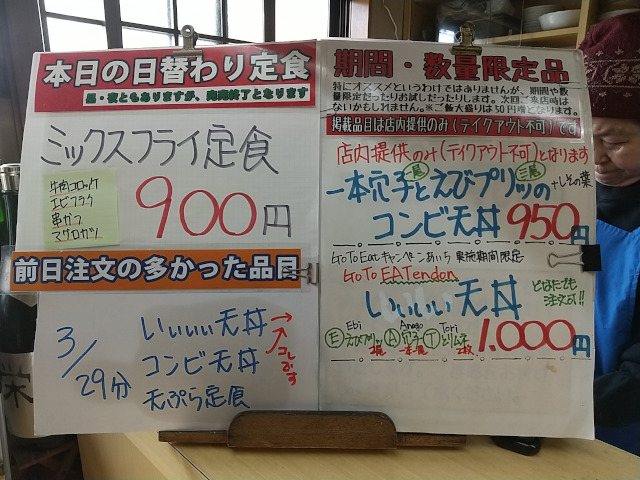 本日の日替わり定食
昼・夜ともありますが、完売終了となります
ミックスフライ定食
牛肉コロッケ
エビフライ
串カツ
マグロカツ
900円
前日注文の多かった品目
3/29分
いいぃぃ天丼
コンビ天丼
天ぷら定食
コレです
期間・数量限定品
特にオススメというわけではありませんが、期間や数
量限定だったりお試しだったりします。次回ご来店時は
ないかもしれません。※ご飯大盛りは50円増となります。
掲載品目は店内提供のみ(テイクアウト不可)です
店内提供のみ(テイクアウト不可)となります
一本穴子と一尾えびプリッの三尾+しその葉
コンビ天丼 950円
GoToEatキャンペーンあいち 実施期間限定
GoTo EATendon
いいぃぃ天丼
どなたでも
注文可!!
Ebi Anago Tori
Ⓔえびプリッ Ⓐ穴子 Ⓣとりムネ
2尾 一本一尾 2枚
1,000円
栄